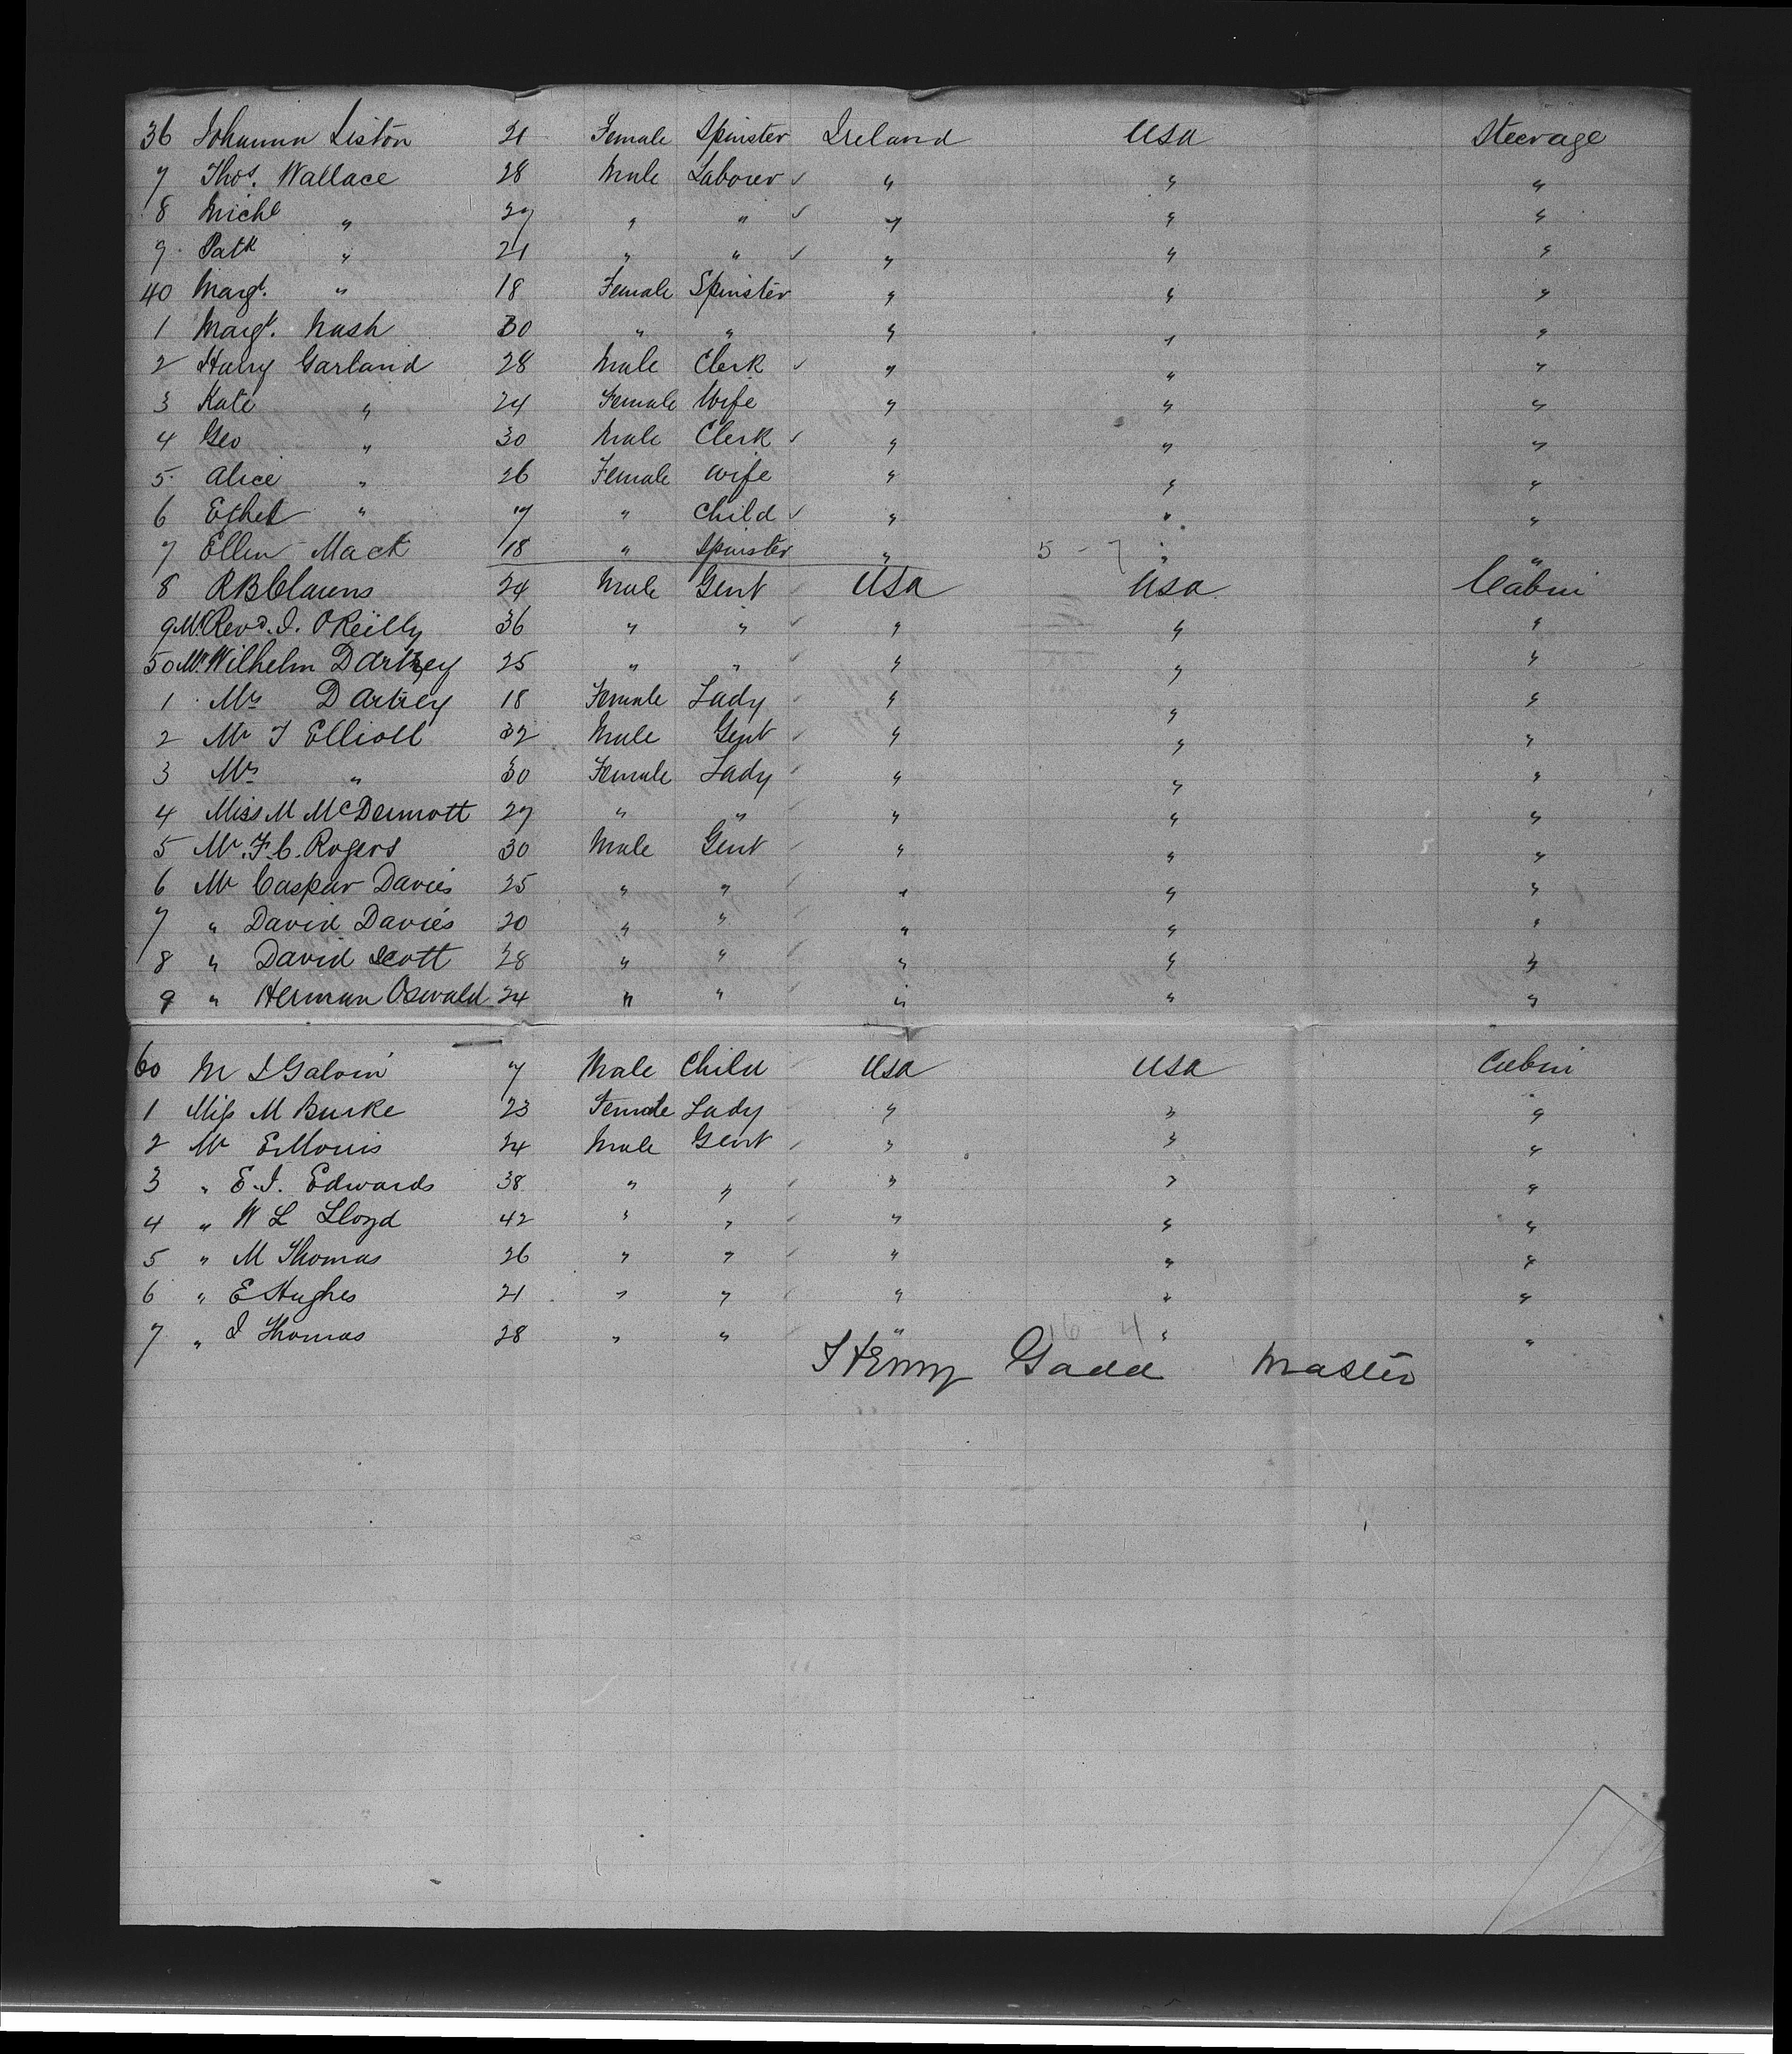 36 Johanna Liston 21 Female Spinster Ireland USA Steerage
7 Thos. Wallace 28 Male Laborer ✓ " " "
8 Michl " 27 " " ✓ " " "
9 Patk " 21 " " ✓ " " "
40 Margt. " 18 Female Spinster " " "
1 Margt. Nash 30 " " " " "
2 Harry Garland 28 Male Clerk ✓ " " "
3 Kate " 24 Female Wife " " "
4 Geo " 30 Male Clerk ✓ " " "
5 Alice " 26 Female Wife " " "
6 Ethel " 7 " Child ✓ " " "
7 Ellen Mack 18 " Spinster " 5 - 7 " "
8 R B Clarens 24 Male Gent USA USA Cabin
9 Mr. Revd. J. O'Reilly 36 " " ✓ " " "
50 Mr. Wilhelm Dartrey 25 " " ✓ " " "
1 Mrs Dartrey 18 Female Lady " " "
2 Mr J Elliott 32 Male Gent ✓ " " "
3 Mrs " 30 Female Lady ✓ " " "
4 Miss M McDermott 27 " " ✓ " " "
5 Mr. F. C. Rogers 30 Male Gent ✓ " " "
6 Mr Caspar Davies 25 " " ✓ " " "
7 " David Davies 20 " " ✓ " " "
8 " David Scott 28 " " ✓ " " "
9 " Herman Oswald 24 " " ✓ " " "
60 M J Galvin 7 Male Child USA USA Cabin
1 Miss M Burke 23 Female Lady " " "
2 Mr E Morris 24 Male Gent ✓ " " "
3 " E. J. Edwards 38 " " ✓ " " "
4 " W L Lloyd 42 " " ✓ " " "
5 " M Thomas 26 " " ✓ " " "
6 " E Hughes 21 " " ✓ " " "
7 " J Thomas 28 " " ✓ " 16 - 4 " "
Henry Gadd Master